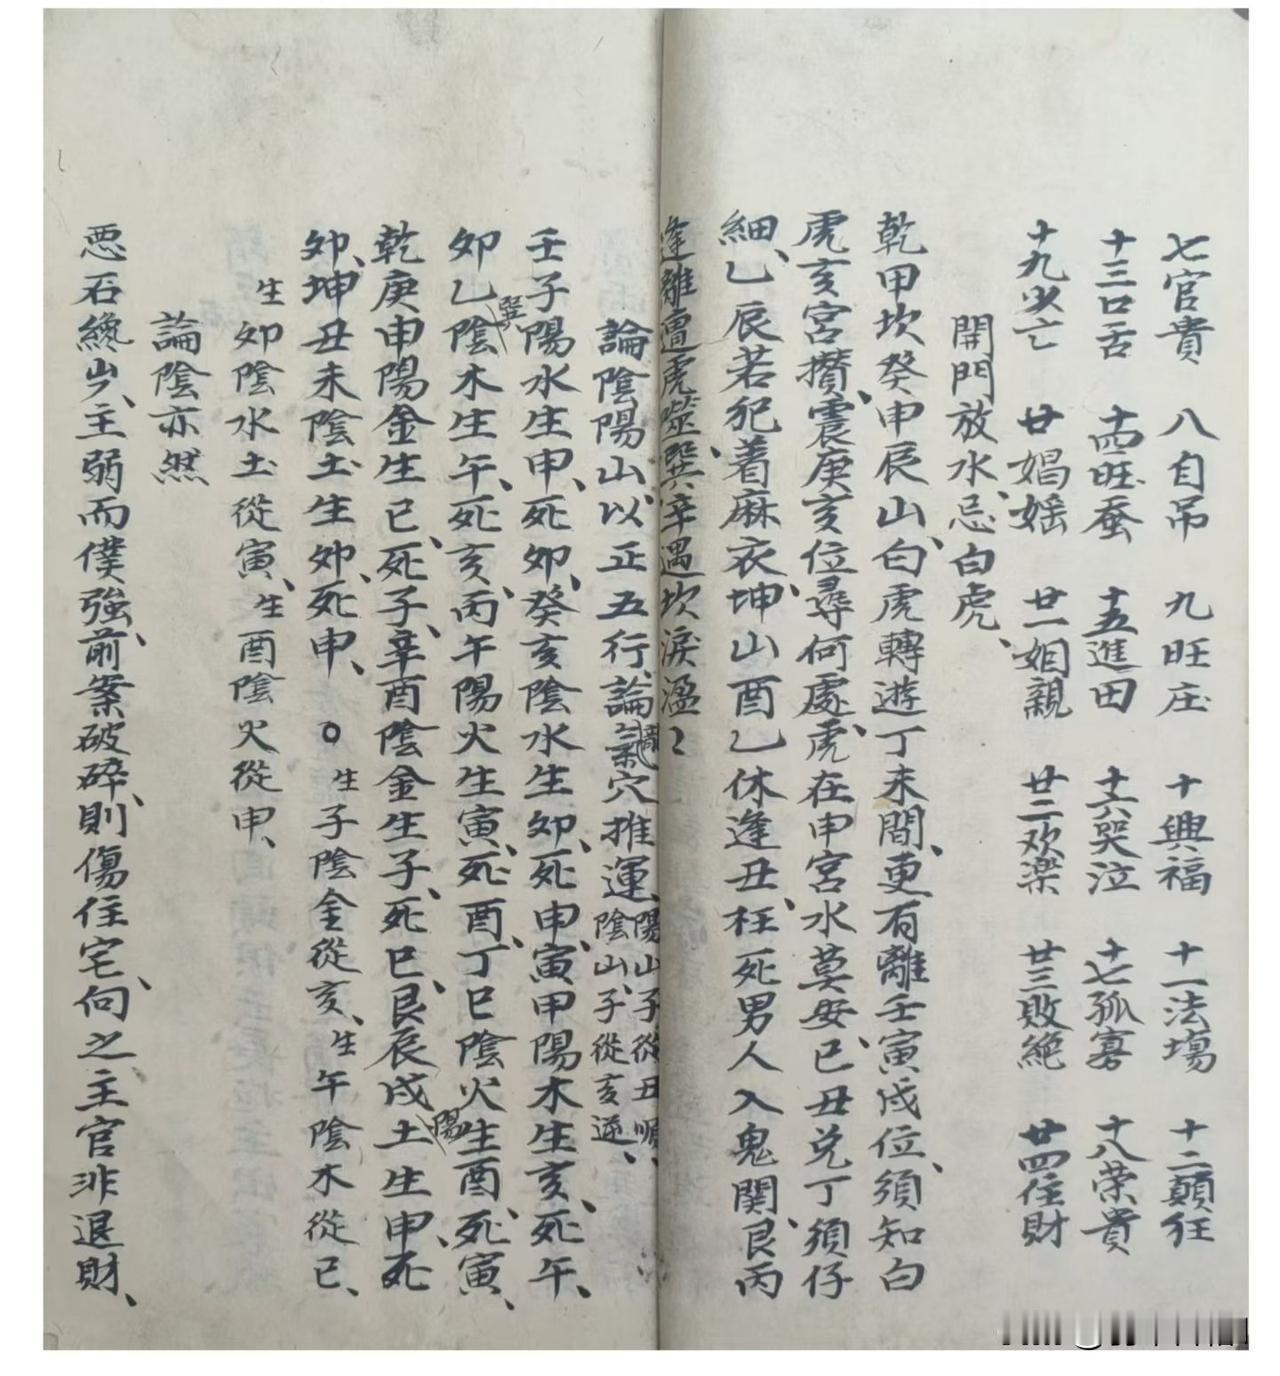 七官貴 八自吊 九旺庄 十興福 十一法場 十二顛狂
十三口舌 十四旺蚕 十五進田 十六哭泣 十七孤寡 十八荣貴
十九少亡 廿娼婬 廿一姻親 廿二欢楽 廿三敗絶 廿四住財
開門放水、忌白虎、
乾甲坎癸申辰山、白虎轉遊丁未間、更有離壬寅戌位、須知白
虎亥宮攢、震庚亥位尋何處、虎在申宮水莫安、巳丑兑丁須仔
細、乙辰若犯着麻衣、坤山酉乙休逢丑、枉死男人入鬼関、艮丙
逢離遭虎噬、巽辛遇坎淚溫〻
論陰陽山、以正五行、論氣穴推運、陽山子從丑順、陰山、子從亥逆、
壬子陽水生申、死卯、癸亥陰水生卯、死申、寅甲陽木生亥、死午、
卯乙巽陰木生午、死亥、丙午陽火生寅、死酉、丁巳陰火生酉、死寅、
乾庚申陽金生巳、死子、辛酉陰金生子、死巳、艮辰戌陽土生申、死
卯、坤丑未陰土生卯、死申、〇生子陰金從亥、生午陰木從巳、
生卯陰水土從寅、生酉陰火從申、
論陰亦然
悪石巉岩、主弱而僕強、前案破碎、則傷住宅、向之主官非退財、